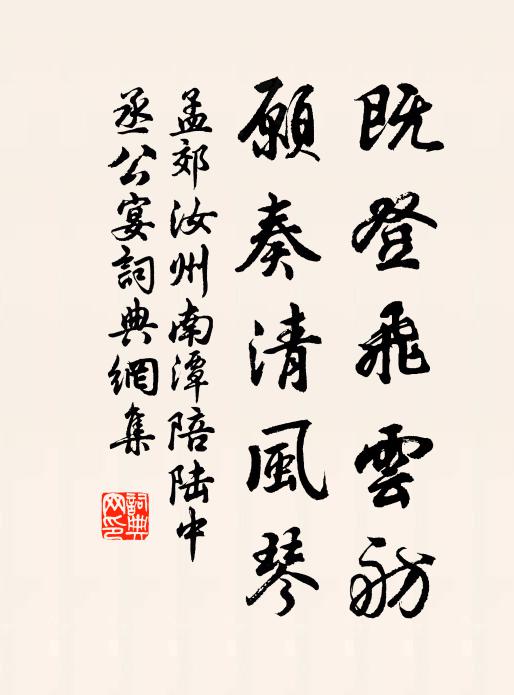 既登飛雲舫
願奏清風琴
孟郊汝州南潭陪陸中
丞公宴詞典網集
詞典
网印